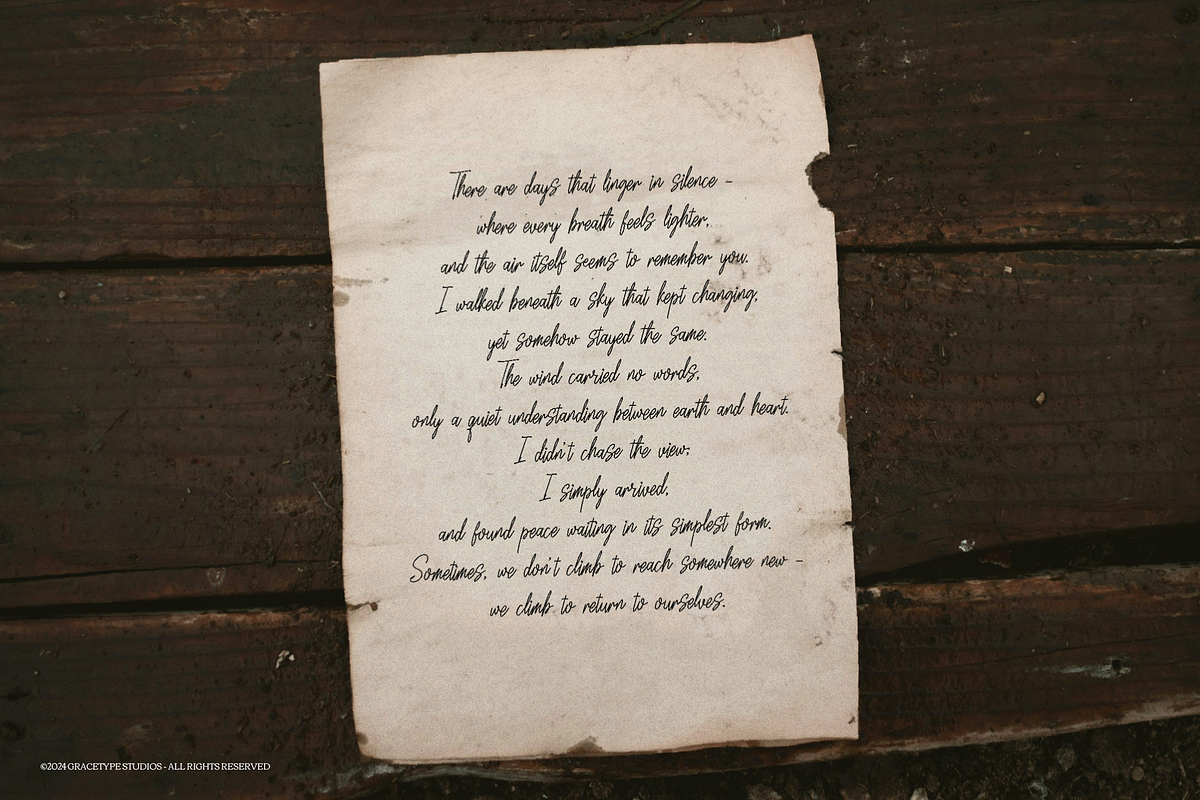 There are days that linger in silence -
where every breath feels lighter,
and the air itself seems to remember you.
I walked beneath a sky that kept changing,
yet somehow stayed the same.
The wind carried no words,
only a quiet understanding between earth and heart.
I didn't chase the view;
I simply arrived,
and found peace waiting in its simplest form.
Sometimes, we don't climb to reach somewhere new -
we climb to return to ourselves.
©2024 GRACETYPE STUDIOS - ALL RIGHTS RESERVED